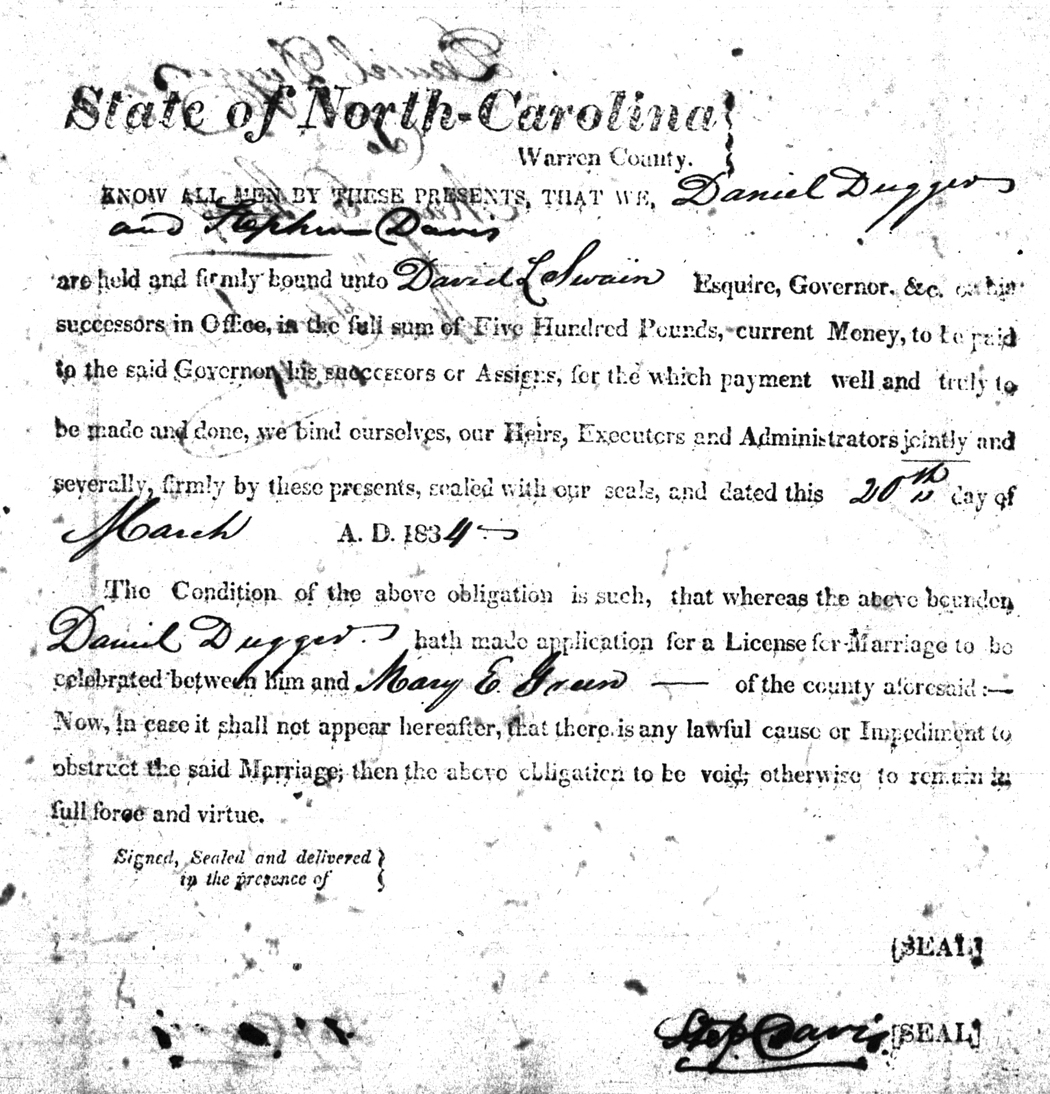 State of North-Carolina
Warren County.
KNOW ALL MEN BY THESE PRESENTS, THAT WE, Daniel Dugger
and Stephen Davis
are held and firmly bound unto David L Swain Esquire, Governor, &c. or his
successors in Office, in the full sum of Five Hundred Pounds, current Money, to be paid
to the said Governor, his successors or Assigns, for the which payment well and truly to
be made and done, we bind ourselves, our Heirs, Executors and Administrators jointly and
severally, firmly by these presents, sealed with our seals, and dated this 20th day of
March A. D. 1834
The Condition of the above obligation is such, that whereas the above bounden
Daniel Dugger hath made application for a License for Marriage to be
celebrated between him and Mary E Green — of the county aforesaid:—
Now, in case it shall not appear hereafter, that there is any lawful cause or Impediment to
obstruct the said Marriage; then the above obligation to be void; otherwise to remain in
full force and virtue.
Signed, Sealed and delivered
in the presence of
[SEAL]
Step. Davis [SEAL]